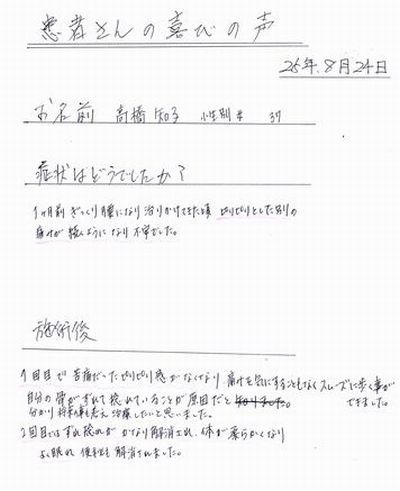 患者さんの喜びの声
25年.8月24日
お名前 高橋 知子 性別 女 37
症状はどうでしたか?
1ヶ月前 ぎっくり腰になり 治りかけてきた頃 切り切りとした別の
痛みが 続くようになり 不安でした。
施術後
1回目で 苦痛だった切り切り感がなくなり 痛みを気にすることもなくスムーズに歩く事が
できました。
自分の骨がずれて捻れていることが原因だと
分かり 将来も考え 治療したいと思いました。
2回目では ずれ捻れが かなり解消され、体が柔らかくなり
よく眠れ 便秘も 解消されました。